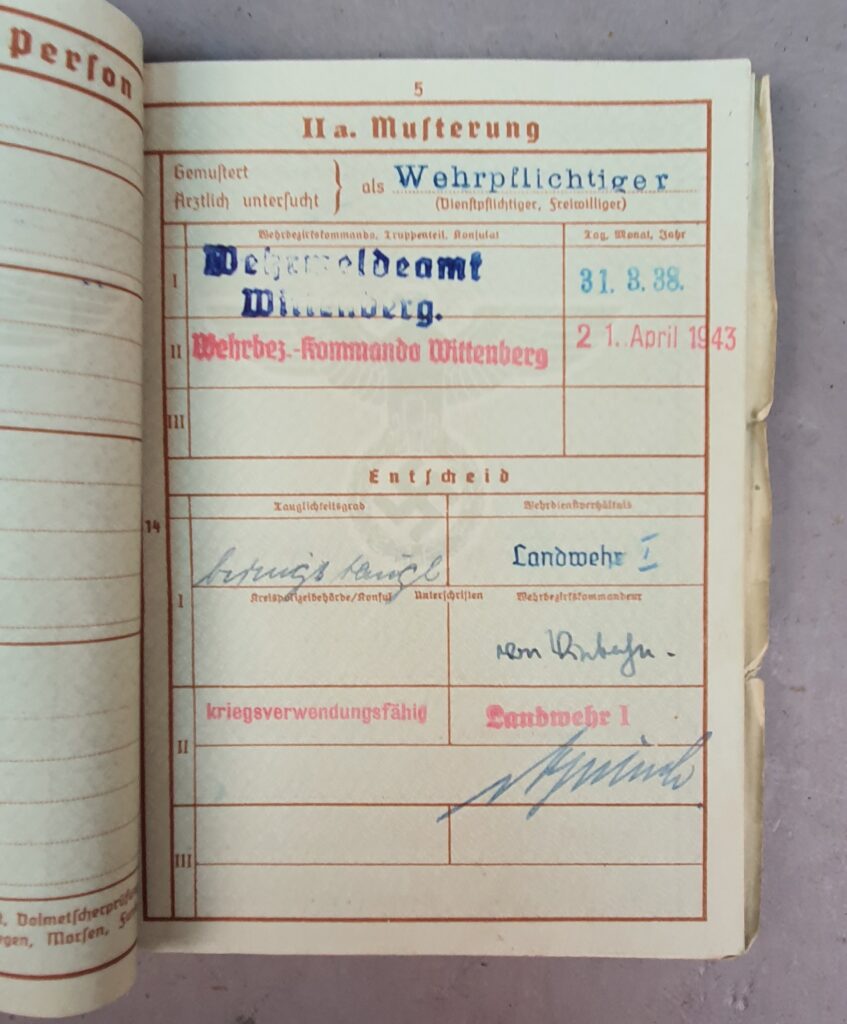 Person
, Dolmetscherprüfun
gen, Morsen, Fun
5
IIa. Musterung
Gemustert
Ärztlich untersucht } als Wehrpflichtiger
(Dienstpflichtiger, Freiwilliger)
Wehrbezirkskommando, Truppenteil, Konsulat Tag, Monat, Jahr
I Wehrmeldeamt
Wittenberg. 31. 3. 38.
II Wehrbez.-Kommando Wittenberg 21. April 1943
III
Entscheid
Tauglichkeitsgrad Wehrdienstverhältnis
14
bedingt taugl Landwehr I
I Kreispolizeibehörde/Konsul Unterschriften Wehrbezirkskommandeur
von
kriegsverwendungsfähig Landwehr I
II
III